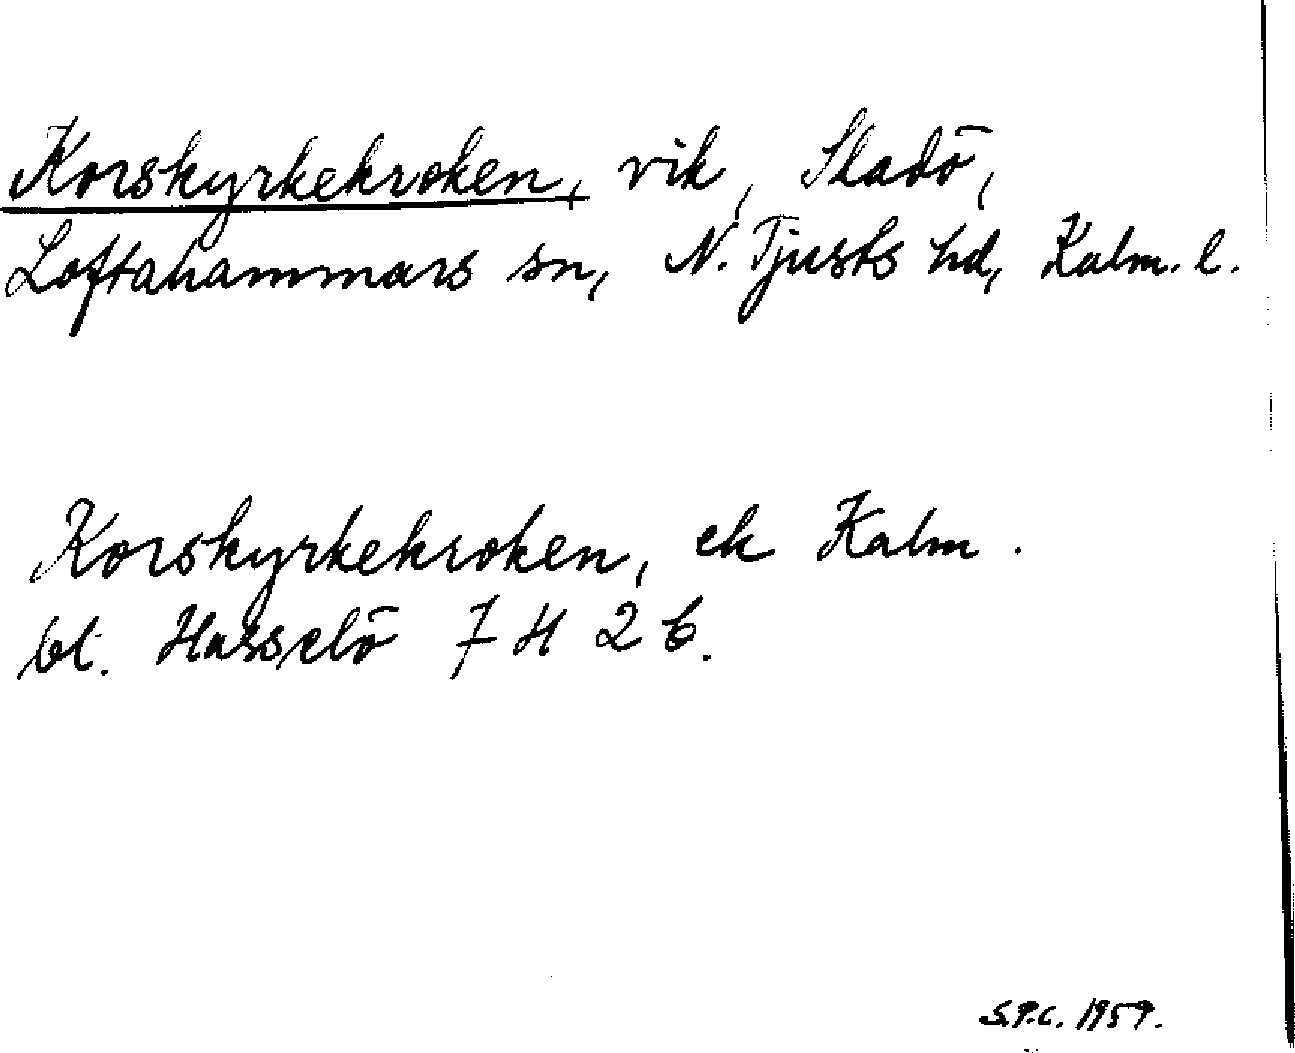 Korskyrkekroken, vik, Sladö,
Loftahammars sn, N. Tjusts hd, Kalm. l.
Korskyrkekroken, ek Kalm.
bl. Hasselö 7 H 2 b.
S.P.C. 1959.